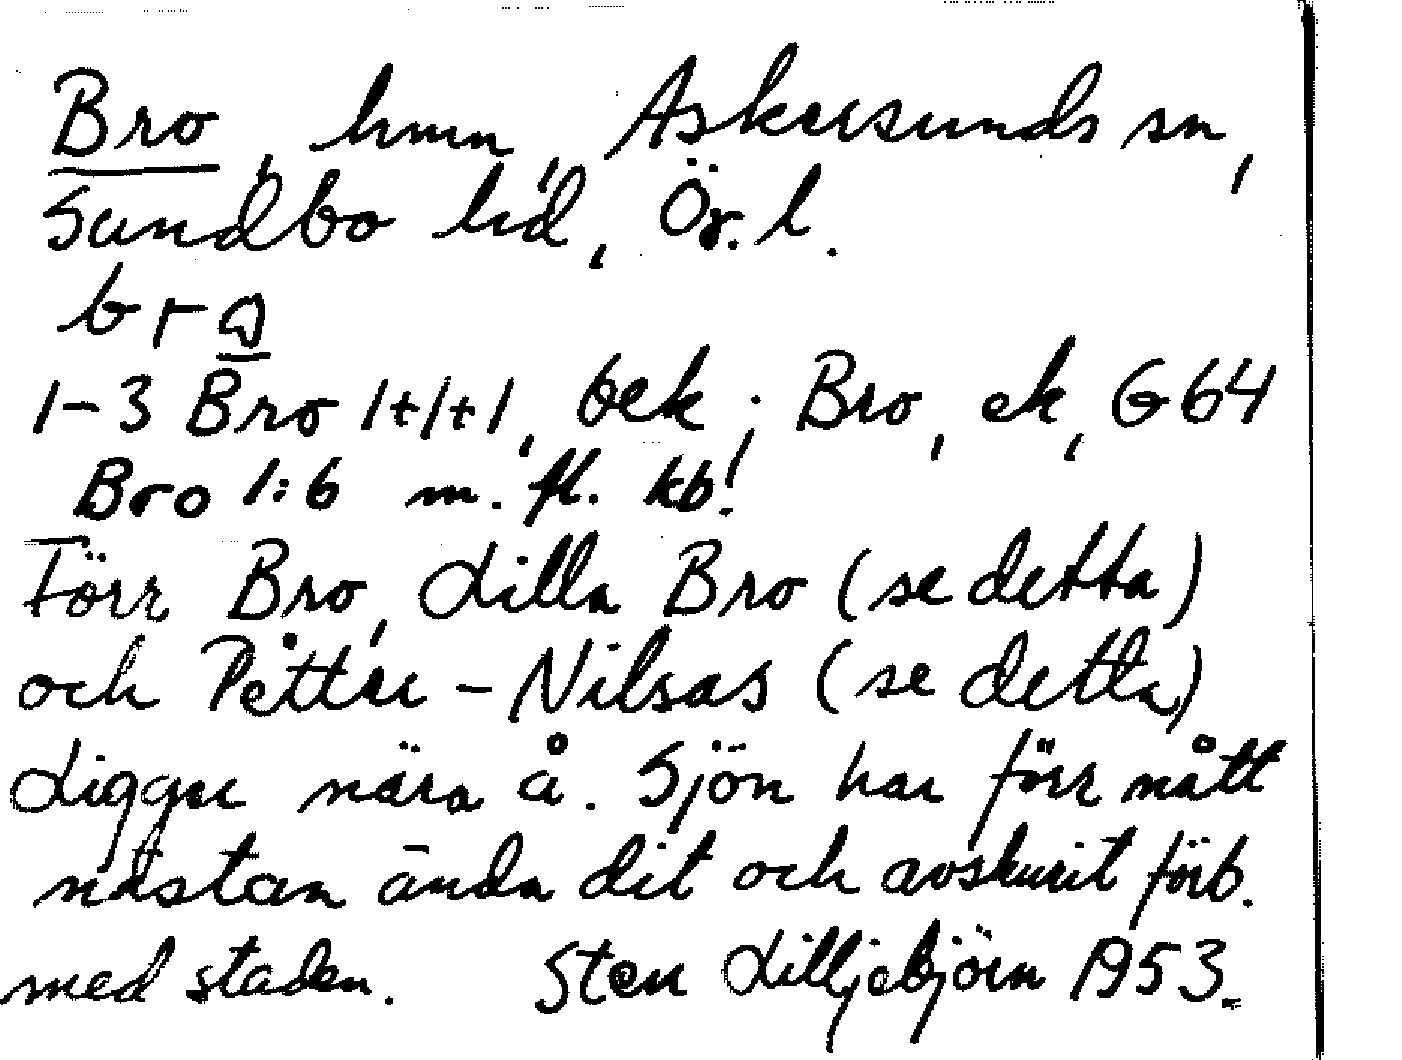 Bro, hmn, Askersunds sn,
Sundbo hd, Ör. l.
1-3 Bro 1+1+1, bek; Bro, ek, G64
Bro 1:6 m. fl. kb!
Förr Bro, Lilla Bro (se detta)
och Petter-Nilsas (se detta)
Ligger nära å. Sjön har förr nått
nästan ända dit och avskurit förb.
med staden. Sten Lilljebjörn 1953.